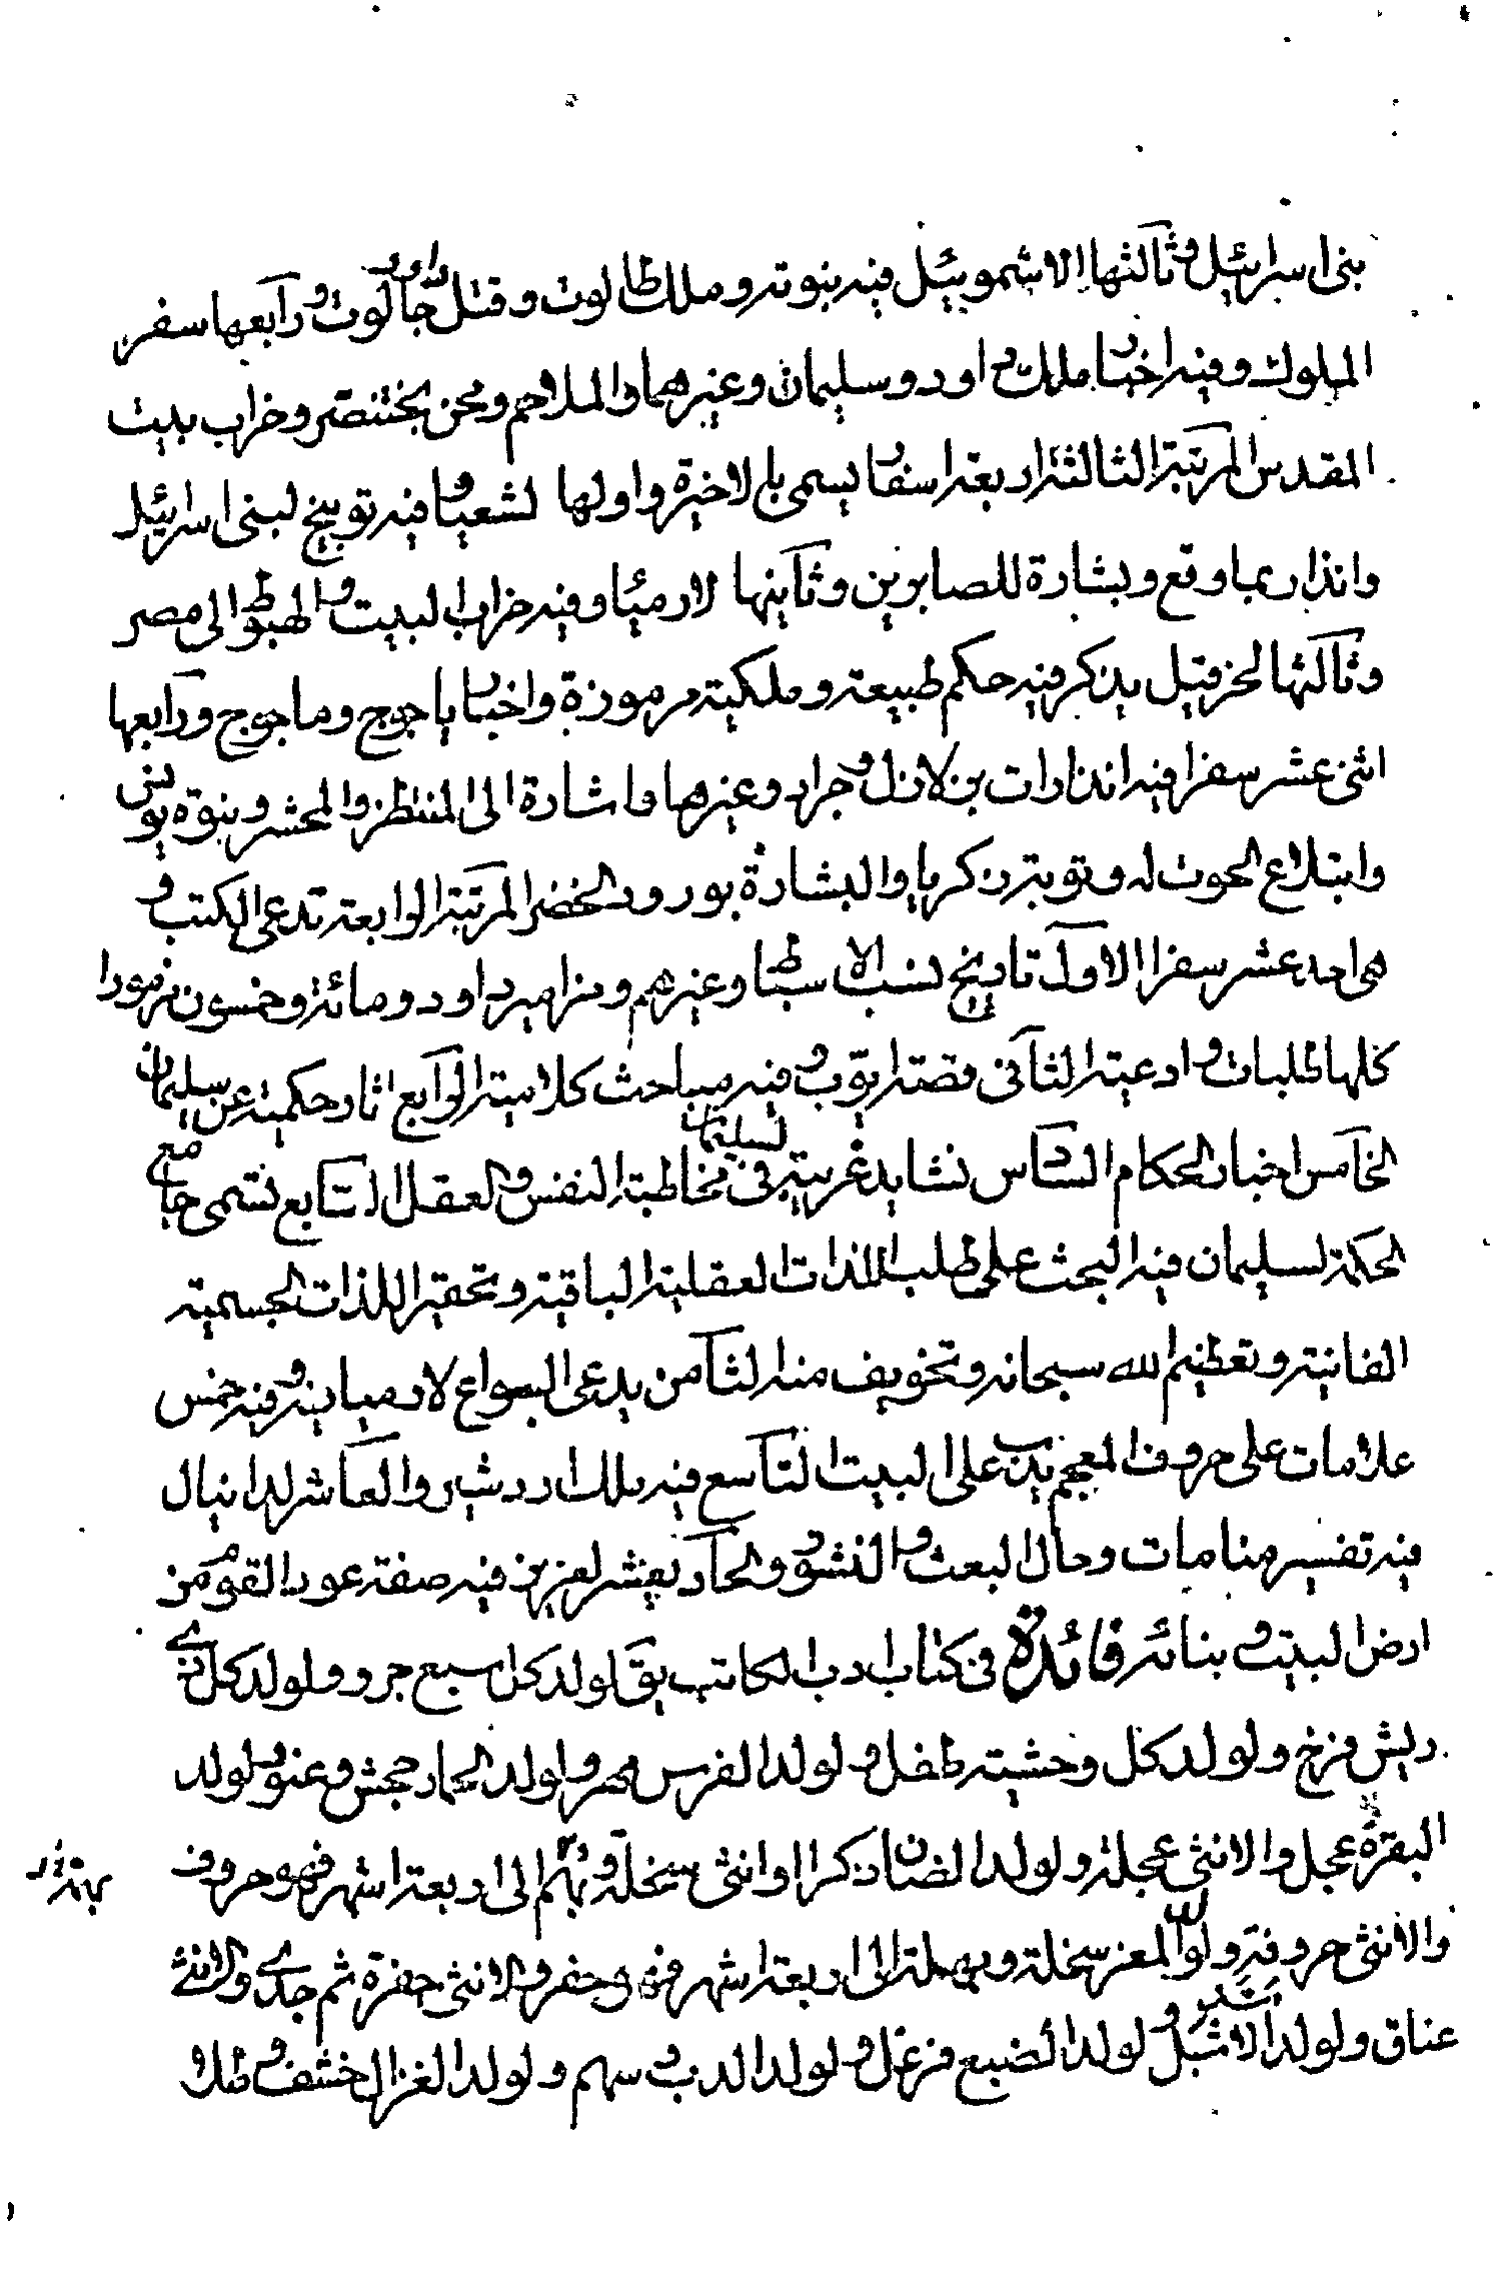 بنى اسرائيل وثالثها لاشموئيل فيه نبوته وملك طالوت وقتل داود جالوت ورابعها سفر
الملوك وفيه اخبار ملك داود وسليمان وغيرهما والملاحم ومحن بختنصر وخراب بيت
المقدس المرتبة الثالثة اربعة اسفار يسمى بالاخيرة واولها لشعيا وفيه توبيخ لبنى اسرائيل
وانذار بما وقع وبشارة للصابرين وثانيها لارميا وفيه خراب البيت والهبوط الى مصر
وثالثها لحزقيل يذكر فيه حكم طبيعة وملكية مرموزة واخبار ياجوج وماجوج ورابعها
اثنى عشر سفرا فيه انذارات بزلازل وجراد وغيرها واشارة الى المنتظر والمحشر ونبوة يونس
وابتلاع الحوت له وتوبة زكريا والبشارة بورود الخضر المرتبة الرابعة تدعى الكتب و
هى احد عشر سفرا الاول تاريخ نسب الاسباط وغيرهم ومزامير داود ومائة وخمسون زمورا
كلها طلبات وادعية الثانى قصة ايوب وفيه مباحث كلامية الرابع اثار حكمية عن سليمان
الخامس اخبار الحكام السادس نشايد غريبة لسليمان فى مخاطبة النفس والعقل السابع تسمى جامع
الحكمة لسليمان فيه البحث على طلب اللذات العقلية الباقية وتحقير اللذات الجسمية
الفانية وتعظيم الله سبحانه وتخويف منه الثامن يدعى البواع لارميا فيه وفيه خمس
علامات على حروف المعجم ندب على البيت التاسع فيه ملك اردشير والعاشر لدانيال
فيه تفسير منامات وحال البعث والنشور والحاديعشر لعزيز فيه صفة عود القوم من
ارض البيت وبنائه فائدة فى كتاب ادب الكاتب يق لولد كل سبع جرو ولولد كل ذى
ريش فرخ ولولد كل وحشية طفل ولولد الفرس مهر ولولد الحمار جحش وعفو ولولد
البقرة عجل والانثى عجلة ولولد الضان ذكرا او انثى سخلة وبهم الى اربعة اشهر فهو حروف
والانثى حروفة ولولد المعز سخلة وبهمة الى اربعة اشهر فهو جفر والانثى جفرة ثم جدى والانثى
عناق ولولد الاسد شبل ولولد الضبع فرعل ولولد الدب سهم ولولد الغزال خشف وطلا